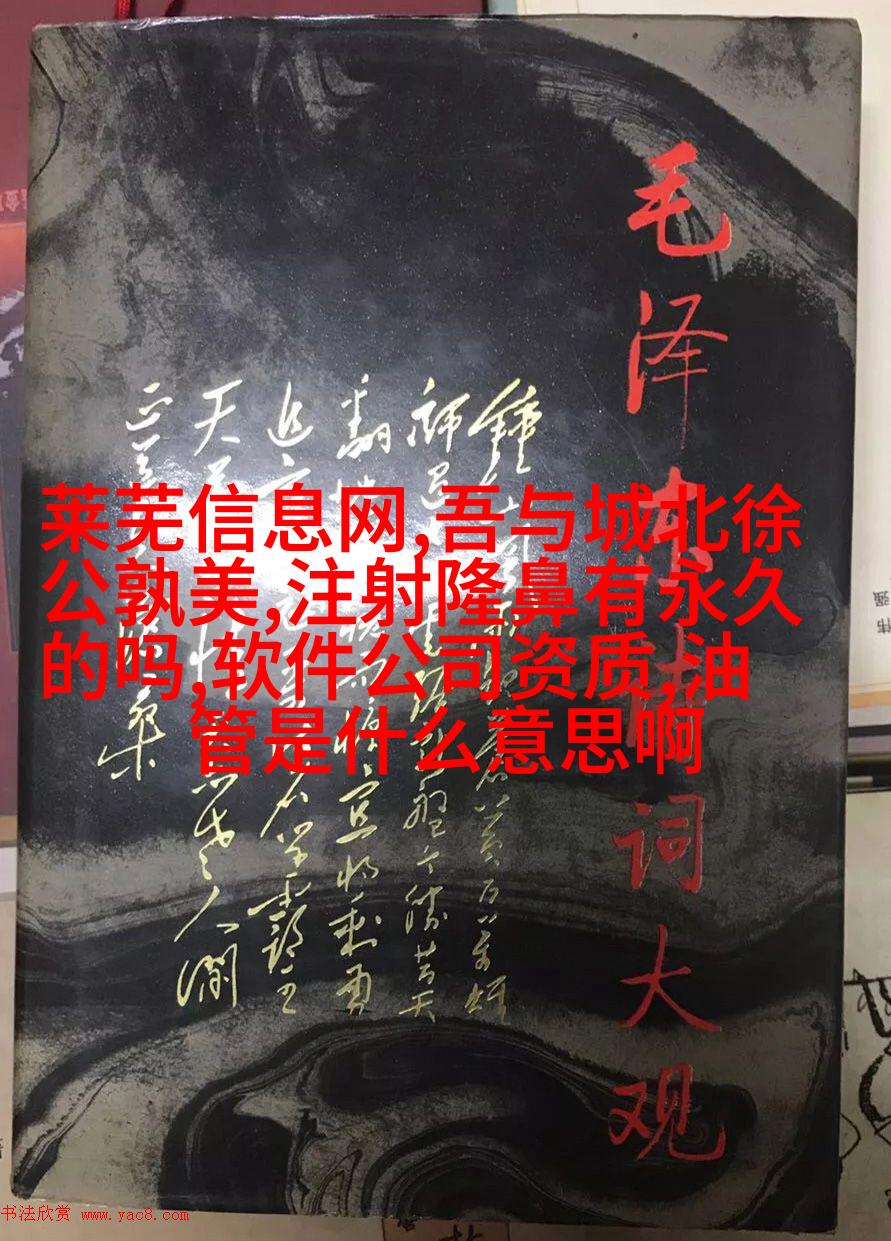 毛泽东诗词大观
锺山風雨起苍黄百万雄
师过大江虎踞龙盘今胜昔天
翻地覆慨而慷宜将剩勇
追穷寇不可沽名学霸王
天若有情天亦老人间
正道是沧桑
莱芜信息网,吾与城北徐
公孰美,注射隆鼻有永久
的吗,软件公司资质,油
管是什么意思啊
书法欣赏 www.yac8.com